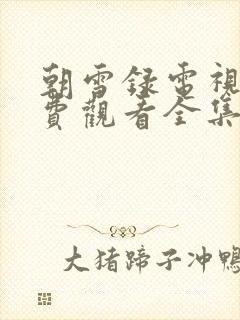 朝雪録電視
費觀看全集
大猪蹄子冲鴨